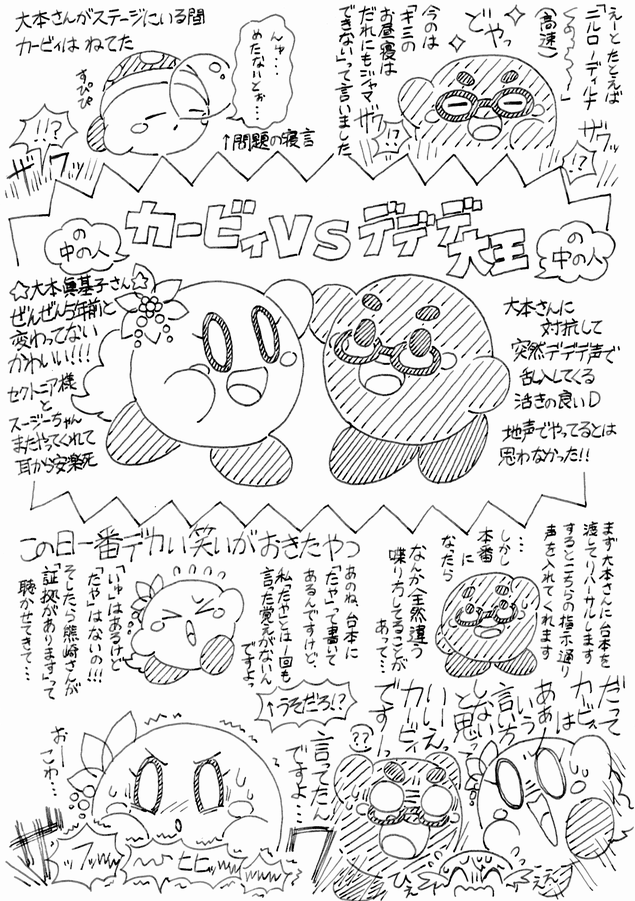 えーとたとえば
「ニルローディルナ
くの〜〜〜」
(高速)
どやっ
今のは
「キミの
お昼寝は
だれにもジャマ
できない」って言いました
ザワッ
!?
ザワッ
!?
大本さんがステージにいる間
カービィは ねてた
んゅ・・・
めたないとぉ・・・
↑問題の寝言
すぴぴ
!!?
ザワッ
カービィVSデデデ大王
の
中の人
の
中の人
☆大本眞基子さん☆
ぜんぜん5年前と
変わってない
かわいい!!!
セクトニア様
と
スージーちゃん
またやってくれて
耳から安楽死
大本さんに
対抗して
突然デデデ声で
乱入してくる
活きの良いD
地声でやってるとは
思わなかった!!
この日一番デカい笑いがおきたやつ
まず大本さんに台本を
渡してリハーサルします
するとこちらの指示通り
声を入れてくれます
・・・
しかし
本番
に
なったら
なんか全然違う
喋り方してることが
あって・・・
あのね、台本に
「だゃ」って書いて
あるんですけど、
私「だゃ」とは1回も
言った覚えがないん
ですよっ
「いゅ」はあるけど
「だゃ」はないの!!!
そしたら熊崎さんが
「証拠があります」って
聴かせてきて・・・
↑うそだろ!?
だって
カービィは
ああいう
言い方
しない
と思っ
いいえっ
カービィ
ですーっ
??
言ってたん
ですよ・・・
ワ
おー
こわ・・・
ザ
ップッ
ヒヒッ
ひえ
ええ